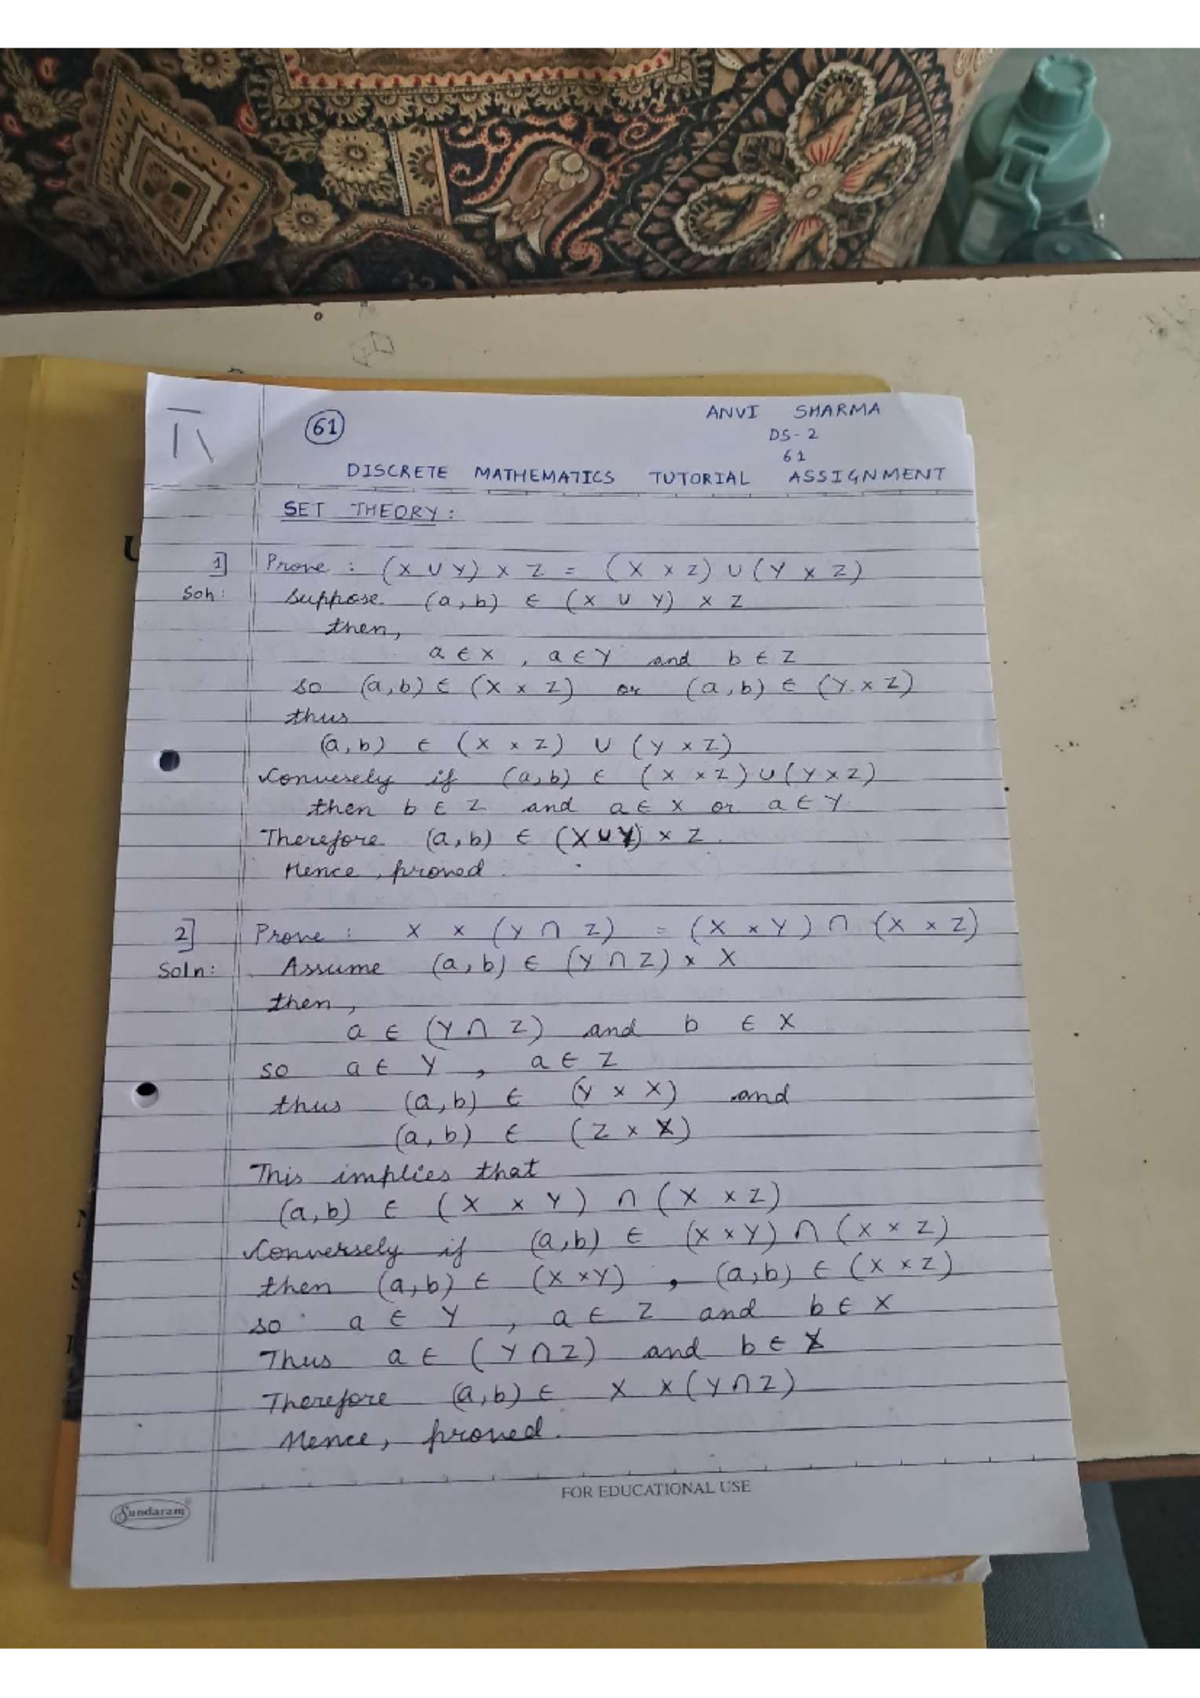 61
ANVI SHARMA
DS-2
61
DISCRETE MATHEMATICS TUTORIAL ASSIGNMENT
SET THEORY:
1] Prove : (X ∪ Y) × Z = (X × Z) ∪ (Y × Z)
Soln: Suppose (a,b) ∈ (X ∪ Y) × Z
then,
a ∈ X , a ∈ Y and b ∈ Z
so (a,b) ∈ (X × Z) or (a,b) ∈ (Y × Z)
thus
(a,b) ∈ (X × Z) ∪ (Y × Z)
Conversely if (a,b) ∈ (X × Z) ∪ (Y × Z)
then b ∈ Z and a ∈ X or a ∈ Y
Therefore (a,b) ∈ (X ∪ Y) × Z.
Hence, proved.
2] Prove : X × (Y ∩ Z) = (X × Y) ∩ (X × Z)
Soln: Assume (a,b) ∈ (Y ∩ Z) × X
then,
a ∈ (Y ∩ Z) and b ∈ X
so a ∈ Y , a ∈ Z
thus (a,b) ∈ (Y × X) and
(a,b) ∈ (Z × X)
This implies that
(a,b) ∈ (X × Y) ∩ (X × Z)
Conversely if (a,b) ∈ (X × Y) ∩ (X × Z)
then (a,b) ∈ (X × Y) , (a,b) ∈ (X × Z)
so a ∈ Y , a ∈ Z and b ∈ X
Thus a ∈ (Y ∩ Z) and b ∈ X
Therefore (a,b) ∈ X × (Y ∩ Z)
Hence, proved.
Sundaram FOR EDUCATIONAL USE